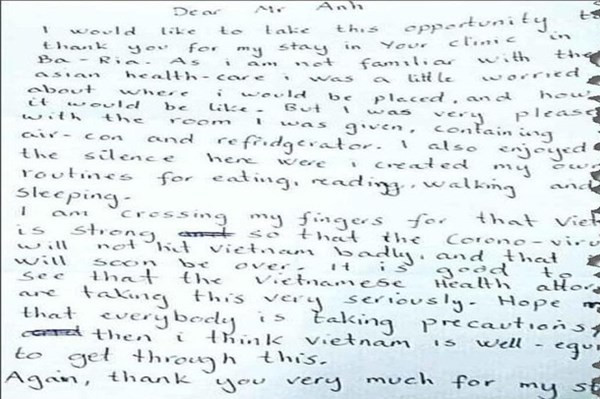 Dear Mr Anh
I would like to take this opportunity to
thank you for my stay in Your clinic in
Ba-Ria. As i am not familiar with the
asian health-care i was a little worried
about where i would be placed, and how
it would be like. But I was very please
with the room I was given, containing
air-con and refridgerator. I also enjoyed
the silence here were i created my own
routines for eating, reading, walking and
sleeping.
I am crossing my fingers for that Viet
is strong so that the Corono-viru
will not hit Vietnam badly, and that i
will soon be over. It is good to
see that the Vietnamese Health attor
are taking this very seriously. Hope
that everybody is taking precautions,
then i think vietnam is well-equi
to get through this.
Again, thank you very much for my st